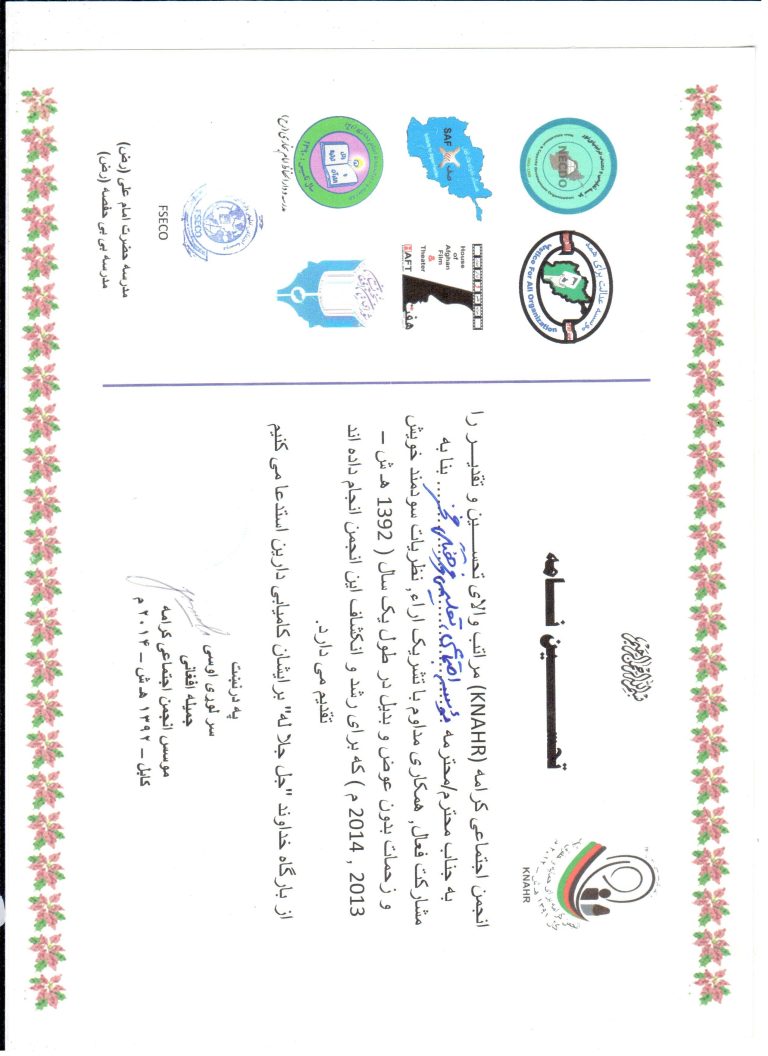 بسم الله الرحمن الرحیم
تحســـــین نـــامه
KNAHR
انجمن اجتماعی کرامه (KNAHR) مراتب والای تحســـین و تقدیـــر را
به جناب محترم/محترمه موسسه اجتماعی تعلیمی ... بنا به
مشارکت فعال, همکاری مداوم با تشریک اراء, نظریات سودمند خویش
و زحمات بدون عوض و بدیل در طول یک سال ( 1392 هـ ش –
2013 , 2014 م ) که برای رشد و انکشاف این انجمن انجام داده اند
تقدیم می دارد.
از بارگاه خداوند "جل جلا له" برایشان کامیابی دارین استدعا می کنیم
په درنښت
سر لوری اوسی
جمیله افغانی
موسس انجمن اجتماعی کرامه
کابل – ۱۳۹۲ هـ ش – ۲۰۱۴ م
NECDO
موسسه عدالت برای همه
Justice For All Organization
SAF
صف
House
of
Afghan
Film
&
Theater
HAFT
هفت
مدرسه و دارالحفاظ امام بخاری (رح)
FSECO
FSECO
مدرسه حضرت امام علی (رض)
مدرسه بی بی حفصه (رض)